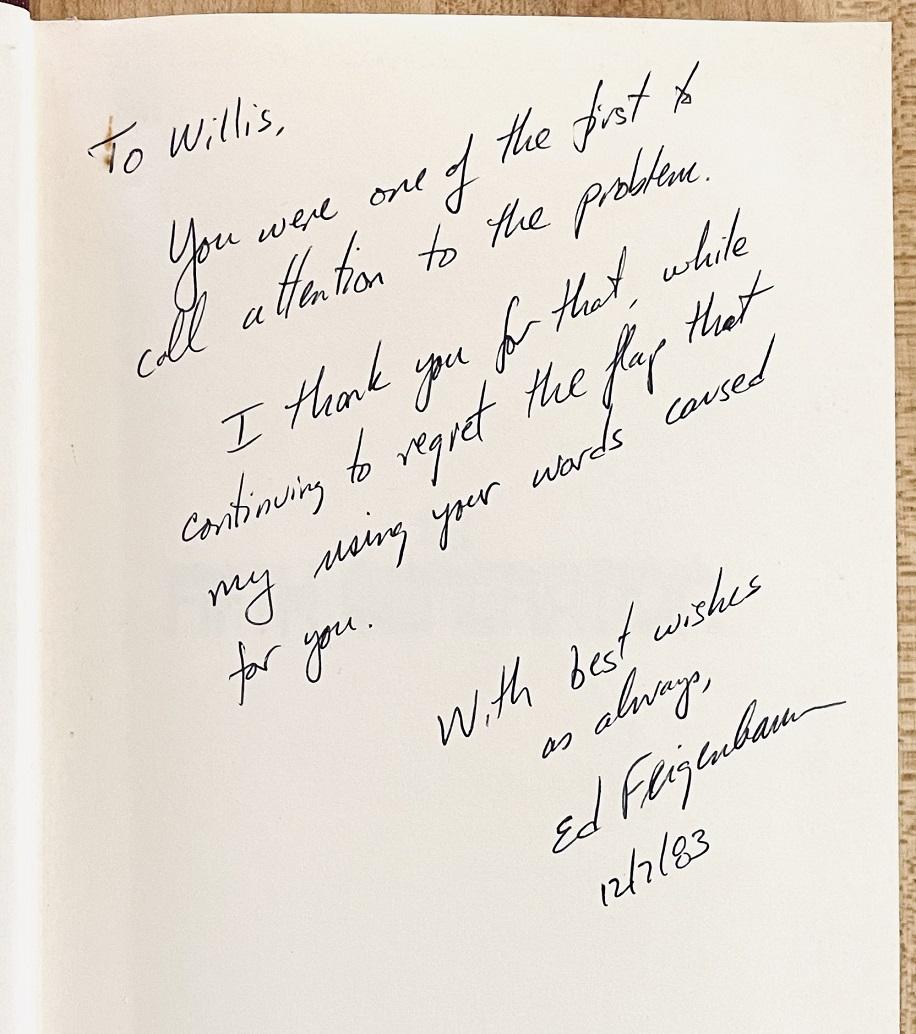 To Willis,
You were one of the first to
call attention to the problem.
I thank you for that, while
continuing to regret the flap that
my using your words caused
for you.
With best wishes
as always,
Ed Feigenbaum
12/7/83